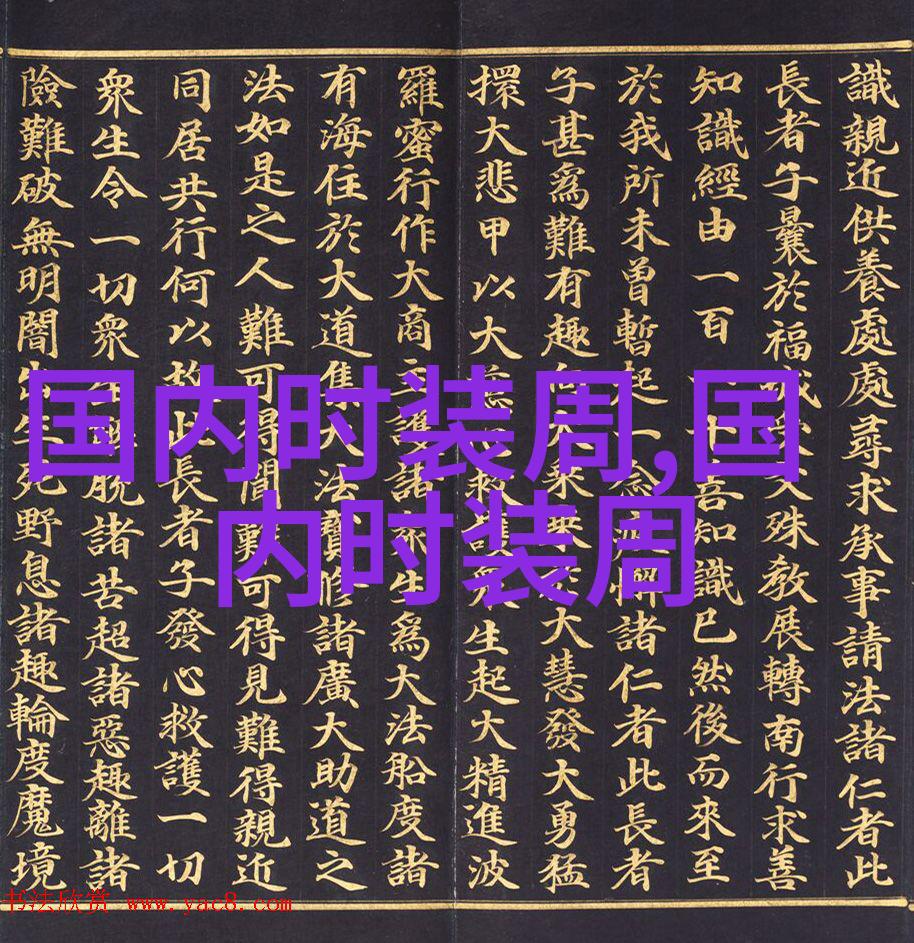 識親近供養處處尋求承事請法諸仁者此
長者子曩於福城受文殊教展轉南行求善
知識經由一百十善知識已然後而來至
於我所未曾暫起一念疲懈諸仁者此長者
子甚爲難有趣向大乘乘於大慧發大勇猛
擐大悲甲以大慈心救護衆生起大精進波
羅蜜行作大商主護諸衆生爲大法船度諸
有海住於大道集大法寶修諸廣大助道之
法如是之人難可得聞難可得見難得親近
同居共行何以故此長者子發心救護一切
衆生令一切衆生解脫諸苦超諸惡趣離諸
險難破無明闇出生死野息諸趣輪度魔境
国内时装周,国
内时装周
书法欣赏 www.yac8.com